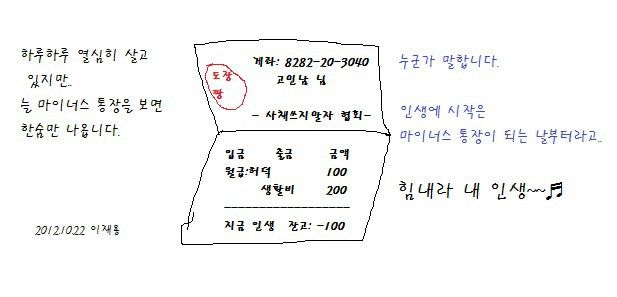 하루하루 열심히 살고
있지만..
늘 마이너스 통장을 보면
한숨만 나옵니다.
2012.10.22 이재룡
계좌: 8282-20-3040
고인남 님
도장
짱
- 사채쓰지말자 협회-
입금 출금 금액
월급:허덕 100
생활비 200
지금 인생 잔고: -100
누군가 말합니다.
인생에 시작은
마이너스 통장이 되는 날부터라고..
힘내라 내 인생~~♬